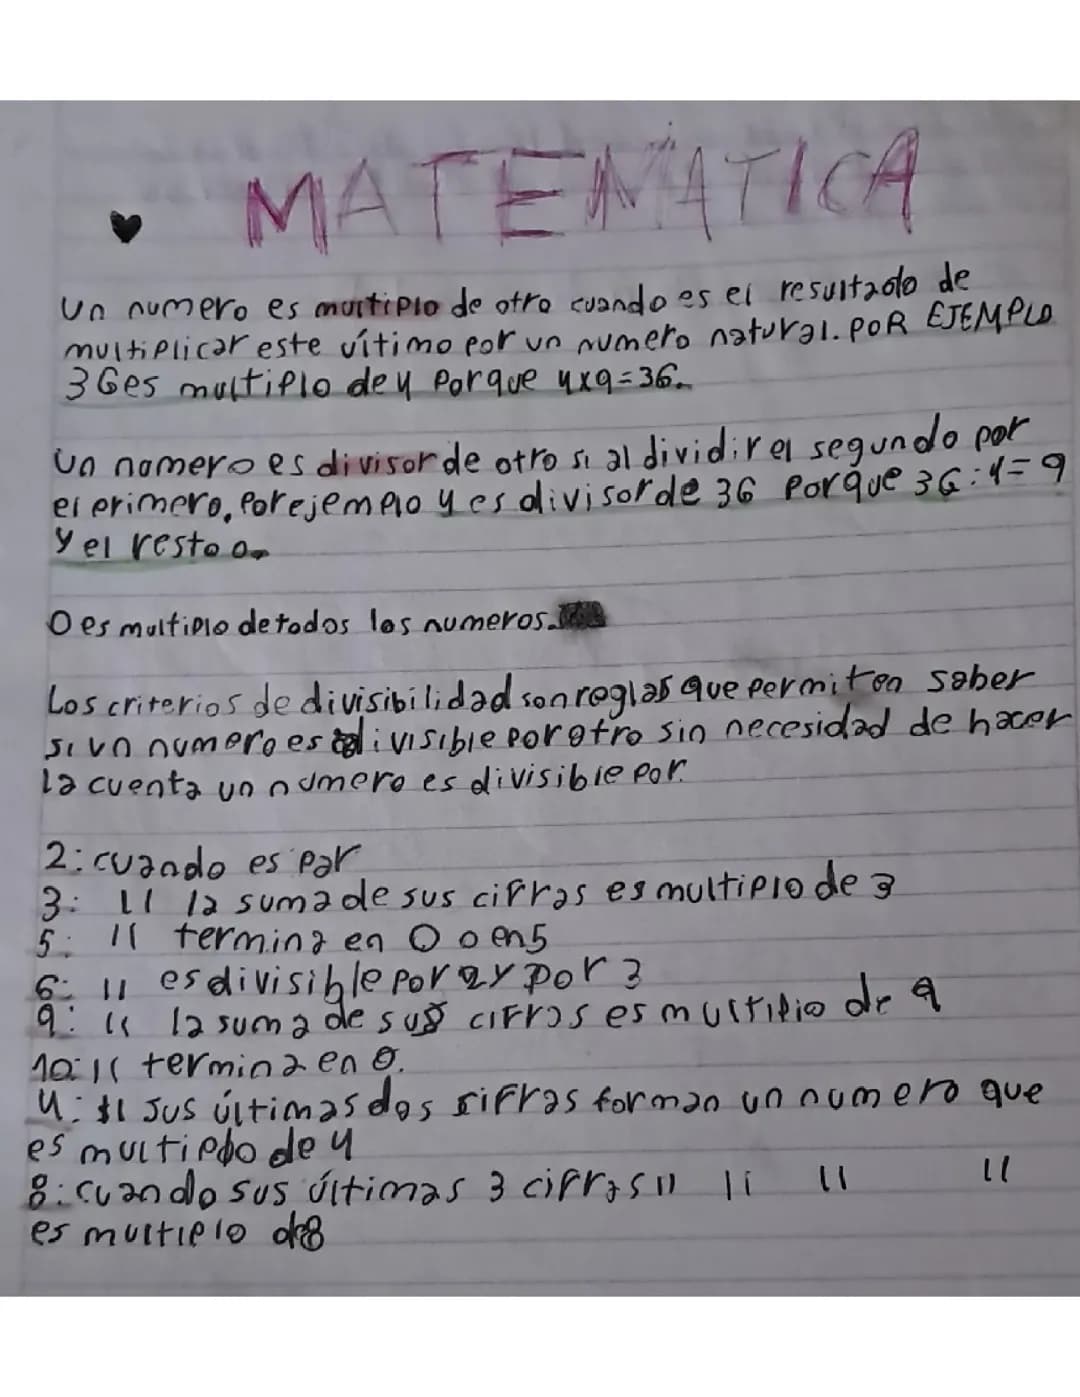 MATEMÁTICA
Un numero es multiplo de otro cuando es el resultado de
multiplicar este último por un numero natural. POR EJEMPLO
36 es multiplo de 4 Porque 4x9=36.
Un número es divisor de otro si al dividir el segundo por
el primero, Por ejemplo 4 es divisor de 36 Porque 36:4=9
y el resto 0.
0 es multiplo de todos los numeros.
Los criterios de divisibilidad son reglas que permiten saber
si un numero es divisible por otro sin necesidad de hacer
la cuenta un número es divisible por:
2: cuando es par
3: 11 la suma de sus cifras es multiplo de 3
5: 11 termina en 0 o en 5
6: 11 es divisible por 2 y por 3
9: 11 la suma de sus cifras es multiplo de 9
10: 11 termina en 0.
4: 11 sus últimas dos sifras forman un numero que
es multiplo de 4
8: cuando sus últimas 3 cifras 11 11 11 11
es multiplo de 8